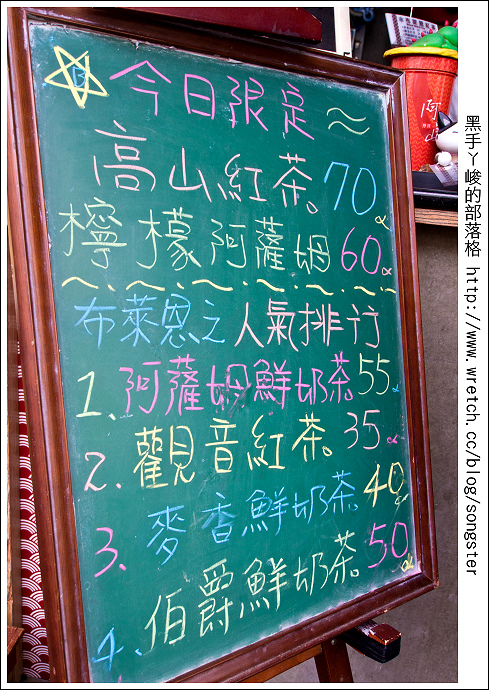 今日限定~
高山紅茶。70
檸檬阿薩姆60
布萊恩之人氣排行
1.阿薩姆鮮奶茶55
2.觀音紅茶。35
3.麥香鮮奶茶40
4.伯爵鮮奶茶50
黑手ㄚ峻的部落格 http://www.wretch.cc/blog/songster